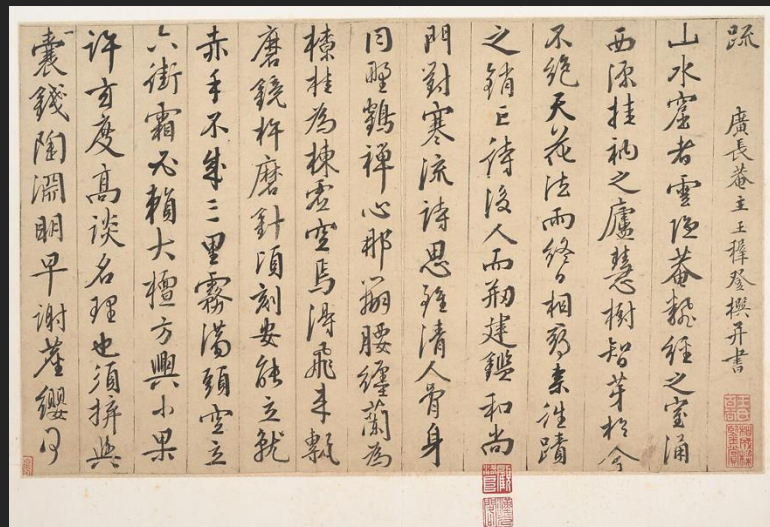 疏
廣長菴主王穉登撰并書
山水窟者雲隱菴轉經之室涌
西源挂衲之廬慧樹智芽於今
不絕天花法雨終日相尋奈往蹟
之銷亡請後人而剏建鑑和尚
門對寒流詩思雖清人骨身
同野鶴禪心那翦腰纏蘭為
橑桂為棟雲空焉得飛來甎
磨鏡杵磨針頃刻安能立就
赤手不成三里霧滿頭空立
六街霜必賴大檀方興小果
許玄度高談名理也須捹與
囊錢陶淵明早謝塵纓